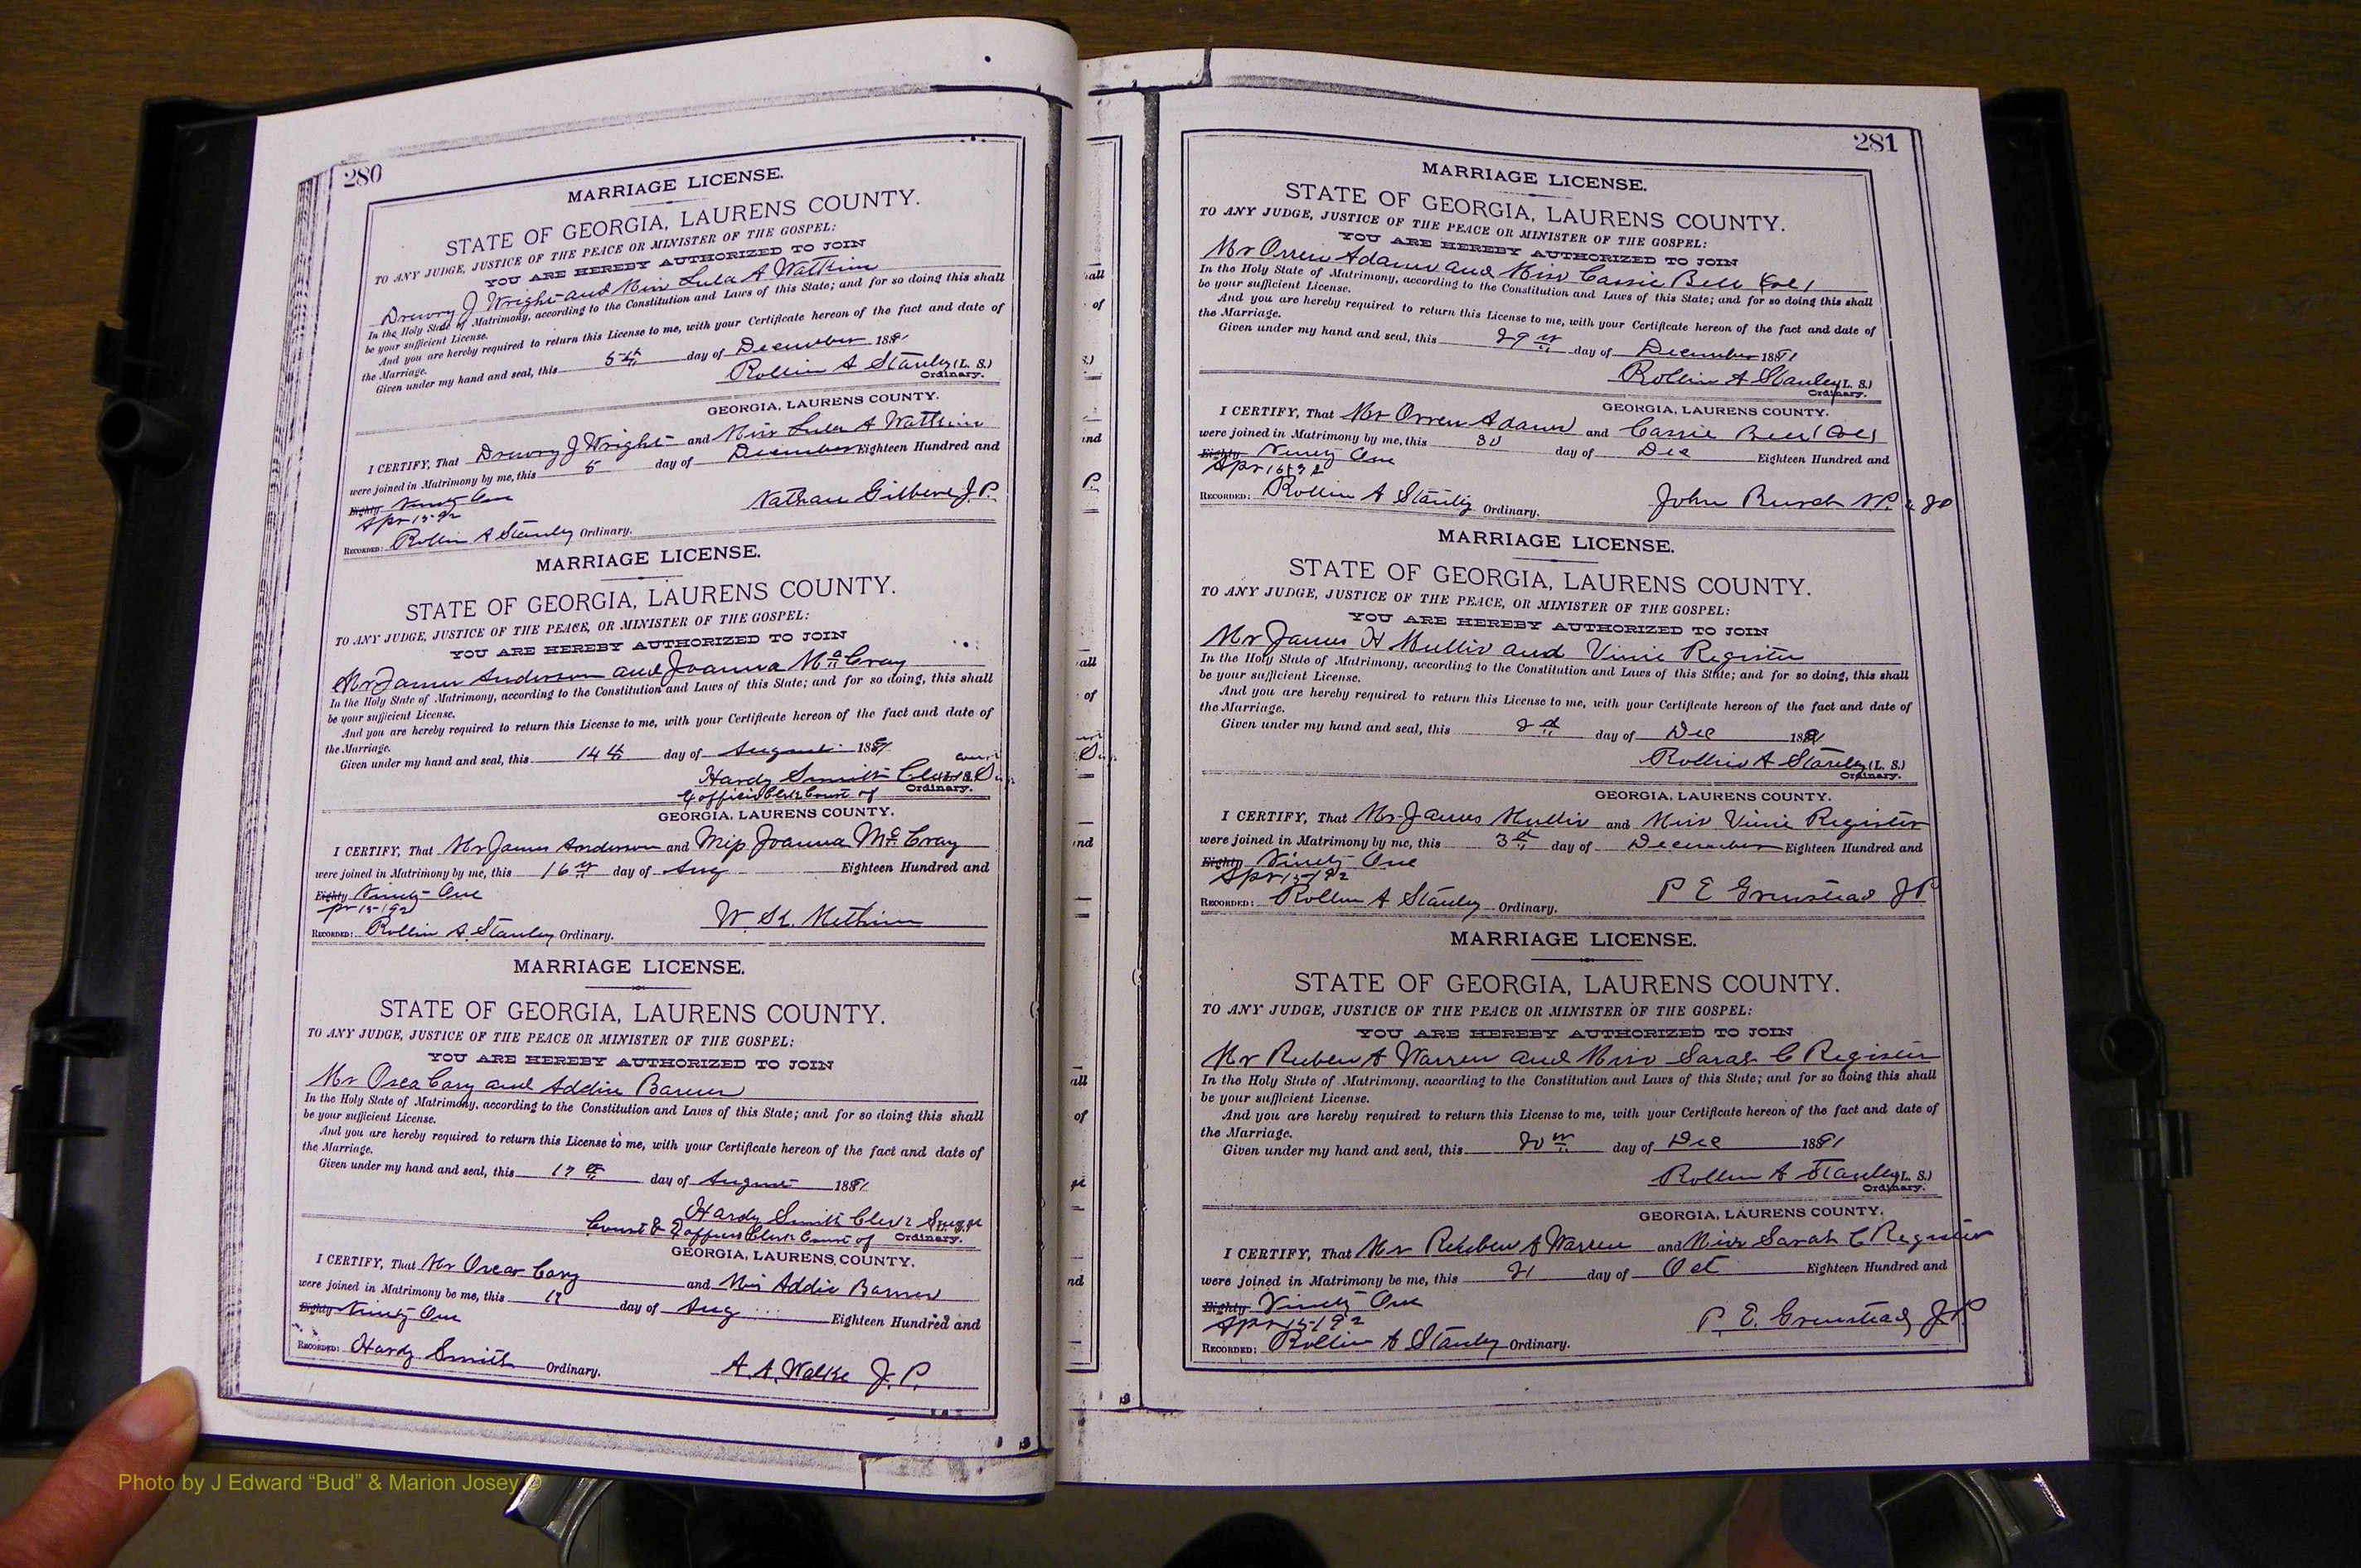 280
MARRIAGE LICENSE.
STATE OF GEORGIA, LAURENS COUNTY.
TO ANY JUDGE, JUSTICE OF THE PEACE OR MINISTER OF THE GOSPEL:
YOU ARE HEREBY AUTHORIZED TO JOIN
Drewry J Wright and Miss Lula A Watkins
In the Holy State of Matrimony, according to the Constitution and Laws of this State; and for so doing this shall
be your sufficient License.
And you are hereby required to return this License to me, with your Certificate hereon of the fact and date of
the Marriage.
Given under my hand and seal, this 5th day of December 1891
Rollin A Stanley (L. S.)
Ordinary.
GEORGIA, LAURENS COUNTY.
I CERTIFY, That Drewry J Wright and Miss Lula A Watkins
were joined in Matrimony by me, this 8 day of December Eighteen Hundred and
Eighty Ninety One
Apr 15-92
RECORDED: Rollin A Stanley Ordinary.
Nathan Gilbert J.P.
MARRIAGE LICENSE.
STATE OF GEORGIA, LAURENS COUNTY.
TO ANY JUDGE, JUSTICE OF THE PEACE, OR MINISTER OF THE GOSPEL:
YOU ARE HEREBY AUTHORIZED TO JOIN
Mr James Anderson and Joanna McCray
In the Holy State of Matrimony, according to the Constitution and Laws of this State; and for so doing, this shall
be your sufficient License.
And you are hereby required to return this License to me, with your Certificate hereon of the fact and date of
the Marriage.
Given under my hand and seal, this 14th day of August 1891
Hardy Smith Clerk
Exofficio Clerk Court of Ordinary.
GEORGIA, LAURENS COUNTY.
I CERTIFY, That Mr James Anderson and Miss Joanna McCray
were joined in Matrimony by me, this 16th day of Aug Eighteen Hundred and
Eighty Ninety One
pr 15-192
RECORDED: Rollin A. Stanley Ordinary.
MARRIAGE LICENSE.
STATE OF GEORGIA, LAURENS COUNTY.
TO ANY JUDGE, JUSTICE OF THE PEACE OR MINISTER OF THE GOSPEL:
YOU ARE HEREBY AUTHORIZED TO JOIN
Mr Cary and Addie
In the Holy State of Matrimony, according to the Constitution and Laws of this State; and for so doing this shall
be your sufficient License.
And you are hereby required to return this License to me, with your Certificate hereon of the fact and date of
the Marriage.
Given under my hand and seal, this 17th day of August 1891
Hardy Smith Clerk
Court & Exofficio Clerk Court of Ordinary.
GEORGIA, LAURENS COUNTY.
I CERTIFY, That Mr Oscar Cary and Miss Addie
were joined in Matrimony be me, this day of Aug Eighteen Hundred and
Eighty Ninety One
RECORDED: Hardy Smith Ordinary.
A. A. Walke J. P.
281
MARRIAGE LICENSE.
STATE OF GEORGIA, LAURENS COUNTY.
TO ANY JUDGE, JUSTICE OF THE PEACE OR MINISTER OF THE GOSPEL:
YOU ARE HEREBY AUTHORIZED TO JOIN
Mr Orren Adams and Miss Cassie Bell (Col)
In the Holy State of Matrimony, according to the Constitution and Laws of this State; and for so doing this shall
be your sufficient License.
And you are hereby required to return this License to me, with your Certificate hereon of the fact and date of
the Marriage.
Given under my hand and seal, this 29th day of December 1891
Rollin A Stanley (L. S.)
Ordinary.
GEORGIA, LAURENS COUNTY.
I CERTIFY, That Mr Orren Adams and Cassie Bell (Col)
were joined in Matrimony by me, this 30 day of Dec Eighteen Hundred and
Eighty Ninety One
Apr 16 92
RECORDED: Rollin A Stanley Ordinary.
John NP. & JP
MARRIAGE LICENSE.
STATE OF GEORGIA, LAURENS COUNTY.
TO ANY JUDGE, JUSTICE OF THE PEACE, OR MINISTER OF THE GOSPEL:
YOU ARE HEREBY AUTHORIZED TO JOIN
Mr James H Mullis and Vinie Register
In the Holy State of Matrimony, according to the Constitution and Laws of this State; and for so doing, this shall
be your sufficient License.
And you are hereby required to return this License to me, with your Certificate hereon of the fact and date of
the Marriage.
Given under my hand and seal, this 2d day of Dec 1891
Rollin A Stanley (L. S.)
Ordinary.
GEORGIA, LAURENS COUNTY.
I CERTIFY, That Mr James Mullis and Miss Vinie Register
were joined in Matrimony by me, this 3d day of December Eighteen Hundred and
Eighty Ninety One
Apr 15-192
RECORDED: Rollin A Stanley Ordinary.
P E Grinstead JP
MARRIAGE LICENSE.
STATE OF GEORGIA, LAURENS COUNTY.
TO ANY JUDGE, JUSTICE OF THE PEACE OR MINISTER OF THE GOSPEL:
YOU ARE HEREBY AUTHORIZED TO JOIN
Mr Reuben A Warren and Miss Sarah C Register
In the Holy State of Matrimony, according to the Constitution and Laws of this State; and for so doing this shall
be your sufficient License.
And you are hereby required to return this License to me, with your Certificate hereon of the fact and date of
the Marriage.
Given under my hand and seal, this 20th day of Dec 1891
Rollin A Stanley (L. S.)
Ordinary.
GEORGIA, LAURENS COUNTY.
I CERTIFY, That Mr Reuben A Warren and Miss Sarah C Register
were joined in Matrimony be me, this 21 day of Oct Eighteen Hundred and
Eighty Ninety One
Apr 15-192
RECORDED: Rollin A Stanley Ordinary.
P. E. Grinstead JP
Photo by J Edward “Bud” & Marion Josey ©